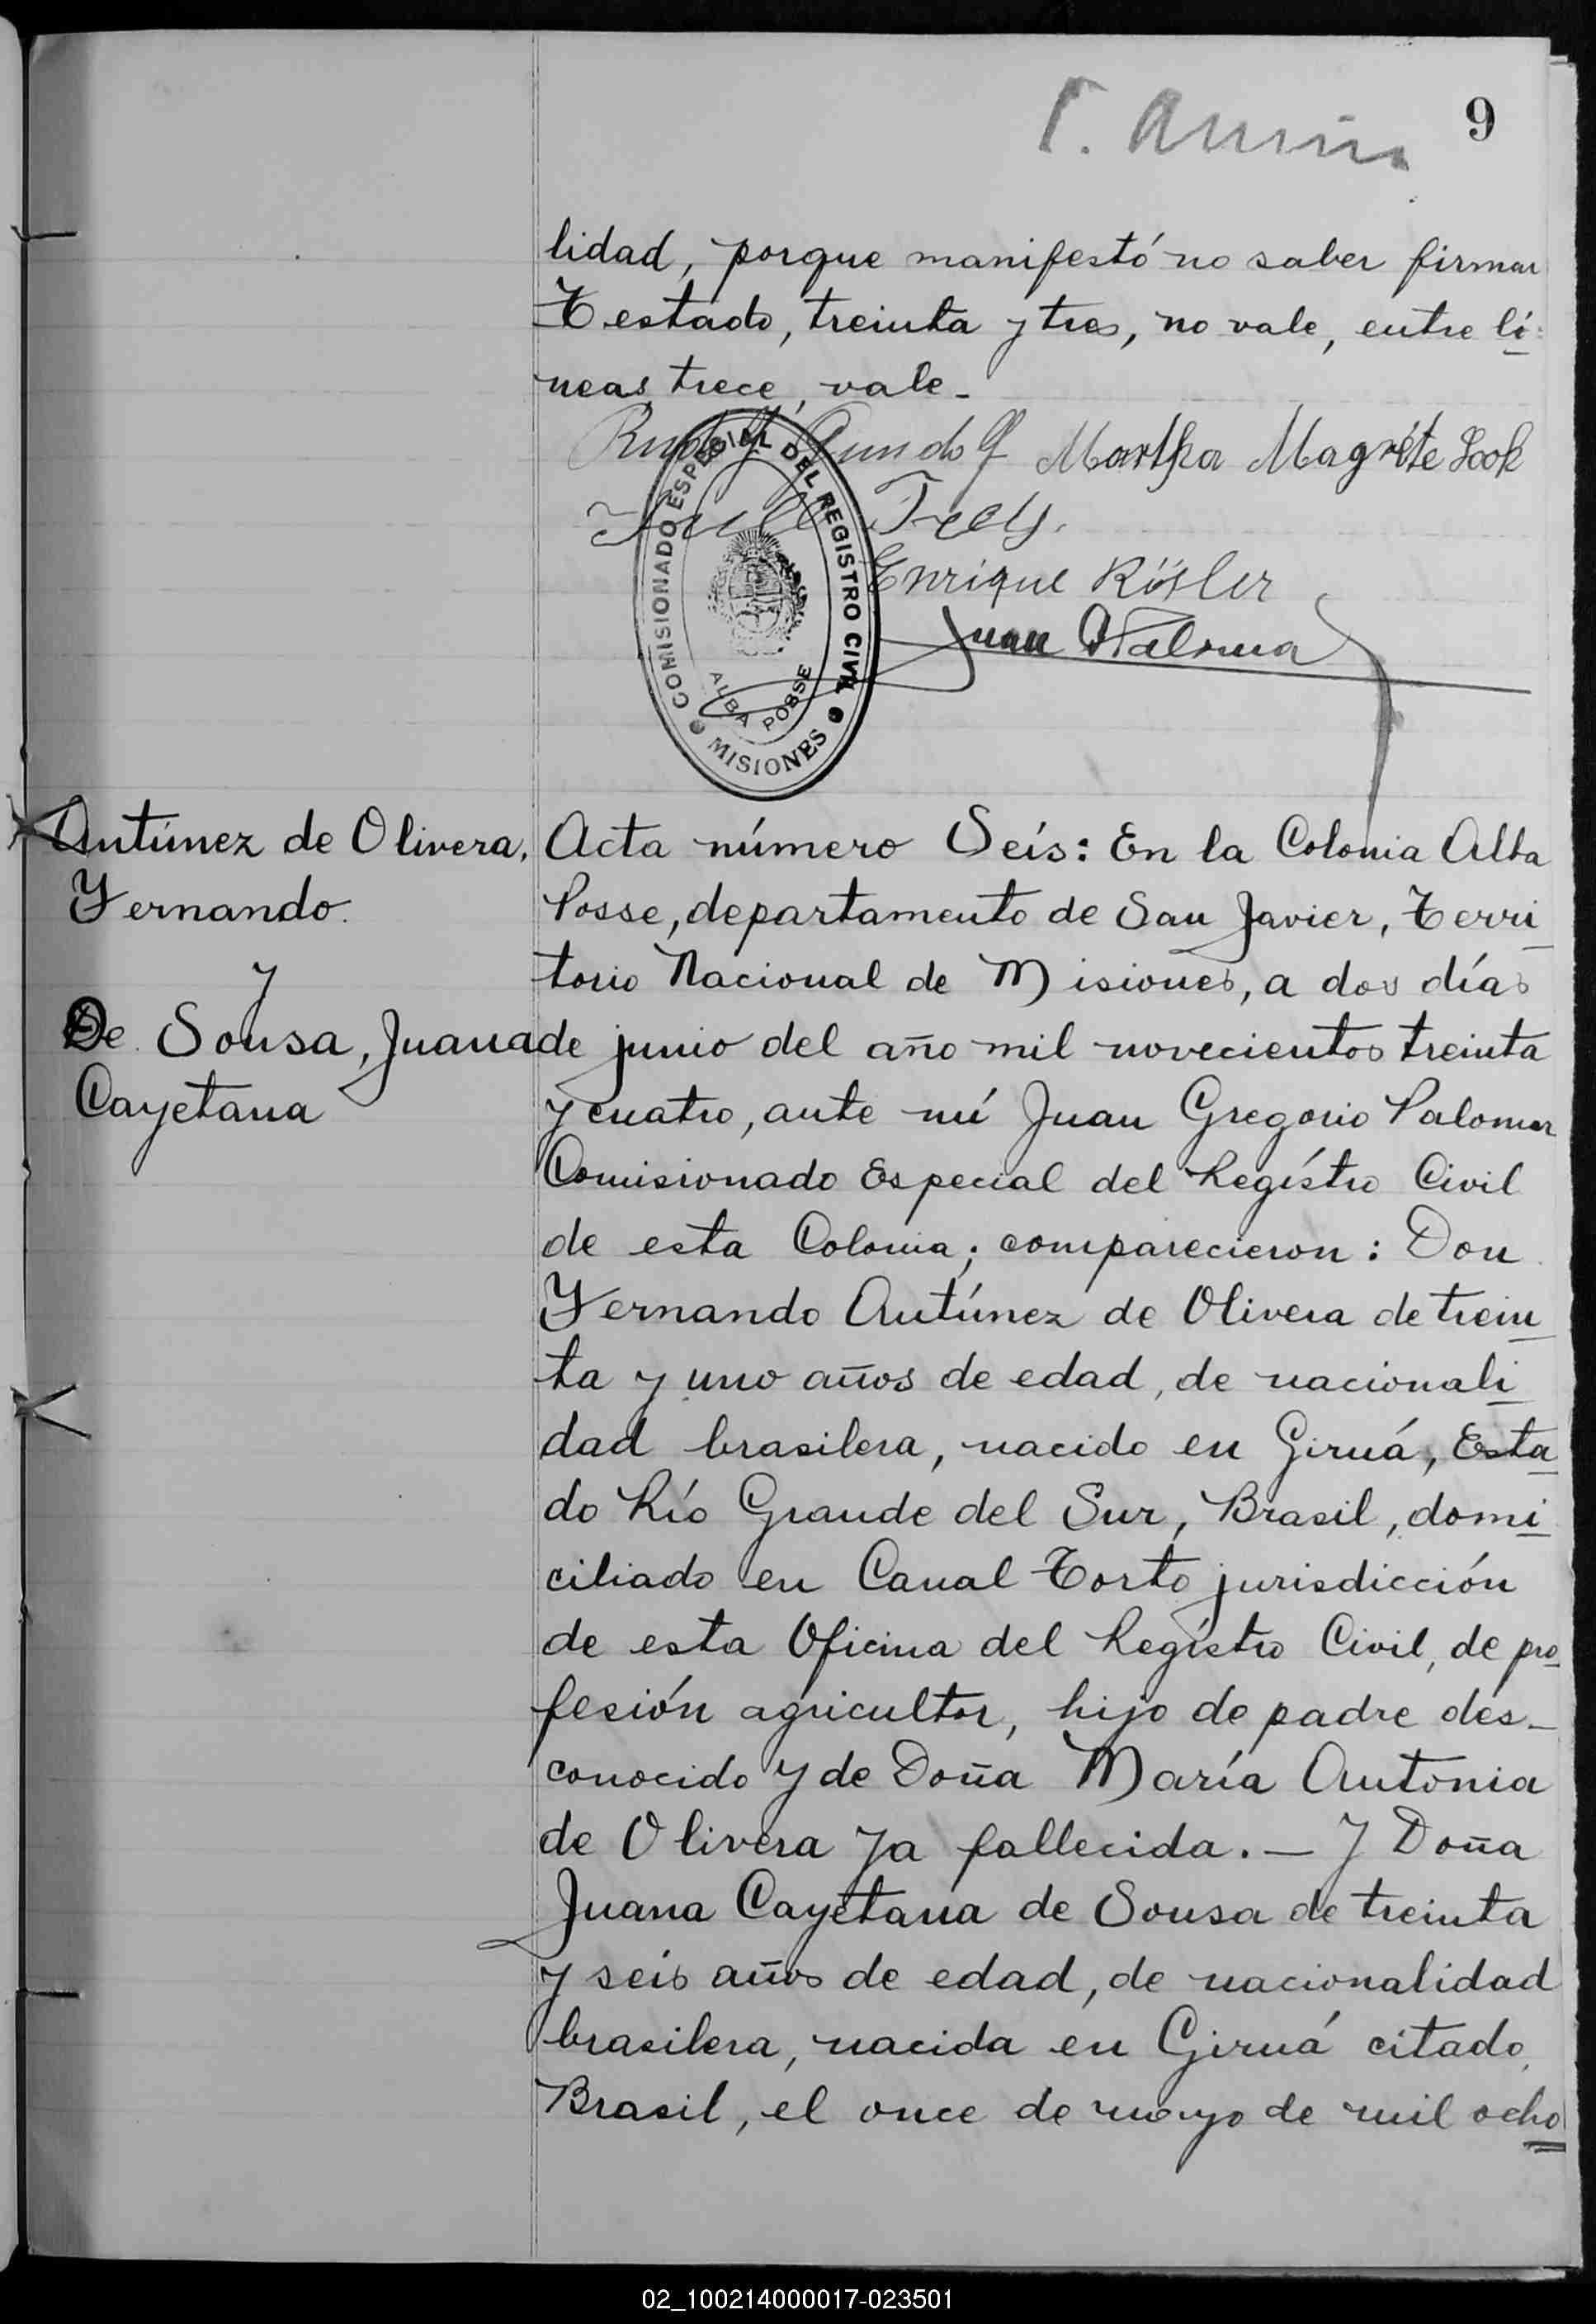 9
lidad, porque manifestó no saber firmar
Testado, treinta y tres, no vale, entre lí
neas, trece, vale-
Martha Magrete
Enrique Rösler
Juan G Palomar
COMISIONADO ESPECIAL DEL REGISTRO CIVIL
ALBA POSSE
MISIONES
Antúnez de Olivera,
Fernando.
y
De Sousa, Juana
Cayetana
Acta número Seis: En la Colonia Alba
Posse, departamento de San Javier, Terri
torio Nacional de Misiones, a dos días
de junio del año mil novecientos treinta
y cuatro, ante mí Juan Gregorio Palomar
Comisionado Especial del Regístro Civil
de esta Colonia; comparecieron: Don
Fernando Antúnez de Olivera de trein
ta y uno años de edad, de nacionali
dad brasilera, nacido en Giruá, Esta
do Río Grande del Sur, Brasil, domi
ciliado en Canal Torto jurisdicción
de esta Oficina del Regístro Civil, de pro
fesión agricultor, hijo de padre des-
conocido y de Doña María Antonia
de Olivera ya fallecida.- Y Doña
Juana Cayetana de Sousa de treinta
y seis años de edad, de nacionalidad
brasilera, nacida en Giruá citado,
Brasil, el once de mayo de mil ocho
02_100214000017-023501